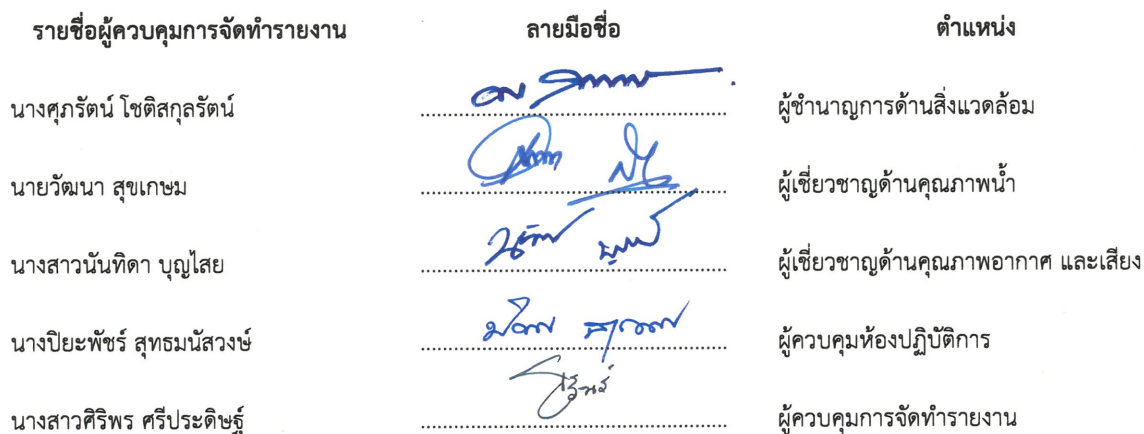 รายชื่อผู้ควบคุมการจัดทำรายงาน ลายมือชื่อ ตำแหน่ง
นางศุภรัตน์ โชติสกุลรัตน์ ผู้ชำนาญการด้านสิ่งแวดล้อม
นายวัฒนา สุขเกษม ผู้เชี่ยวชาญด้านคุณภาพน้ำ
นางสาวนันทิดา บุญไสย ผู้เชี่ยวชาญด้านคุณภาพอากาศ และเสียง
นางปิยะพัชร์ สุทธมนัสวงษ์ ผู้ควบคุมห้องปฏิบัติการ
นางสาวศิริพร ศรีประดิษฐ์ ผู้ควบคุมการจัดทำรายงาน